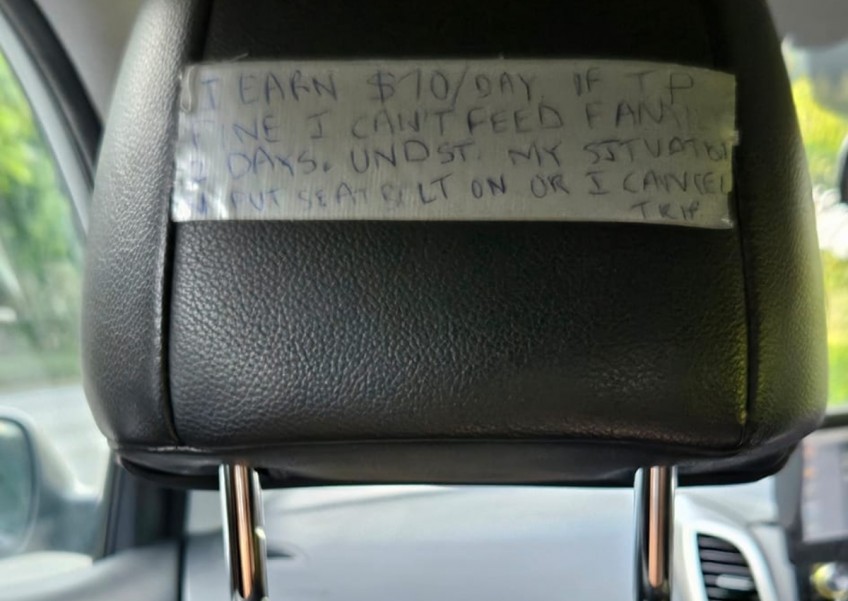 I EARN $10/DAY. IF T.P
FINE I CAN'T FEED FAMILY
DAYS. UNDST. MY SITUATION
PUT SEAT BELT ON OR I CANCEL
TRIP